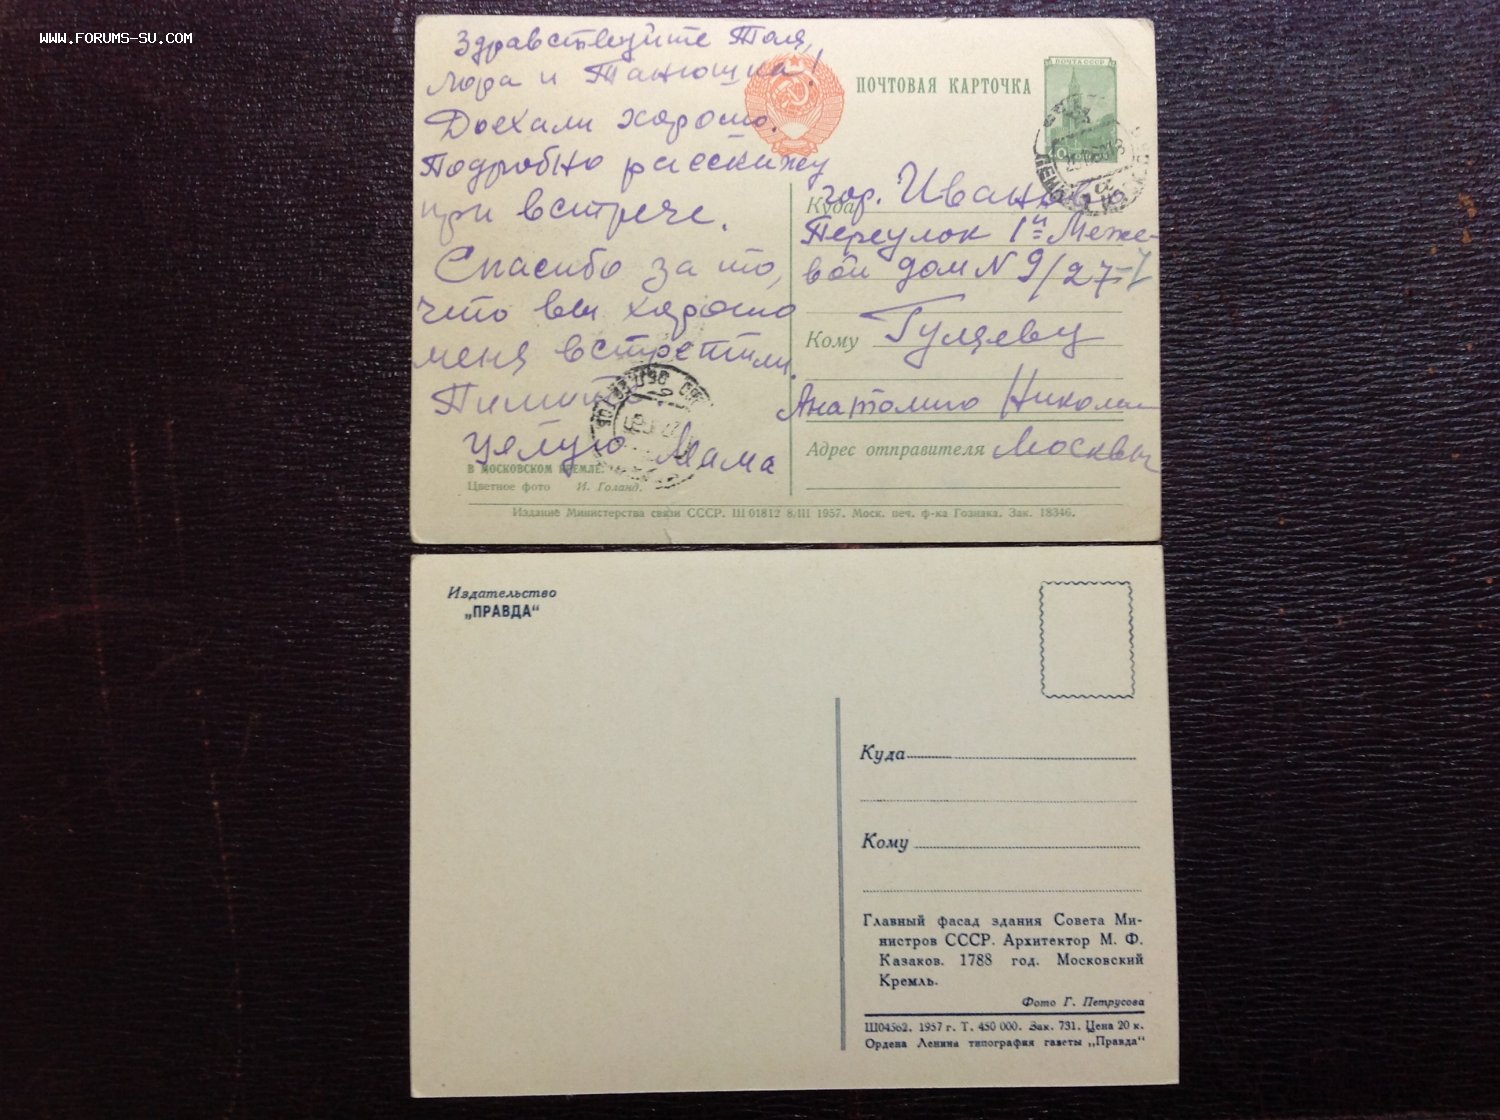 WWW.FORUMS-SU.COM
Здравствуйте Толя,
Лора и Танюшка!
Доехали хорошо.
Подробно расскажу
при встрече.
Спасибо за то,
что вы хорошо
меня встретили.
Пишите.
Целую Мама
В МОСКОВСКОМ КРЕМЛЕ.
Цветное фото И. Голанд.
ПОЧТОВАЯ КАРТОЧКА
ПОЧТА СССР
Куда гор. Иваново
Переулок 1й Меже-
вой дом N 9/27-7
Кому Гуляеву
Анатолию Никола
Адрес отправителя Москвы
Издание Министерства связи СССР. Ш 01812 8/III 1957. Моск. печ. ф-ка Гознака. Зак. 18346.
Издательство
„ПРАВДА“
Куда
Кому
Главный фасад здания Совета Ми-
нистров СССР. Архитектор М. Ф.
Казаков. 1788 год. Московский
Кремль.
Фото Г. Петрусова
Ш04562. 1957 г. Т. 450 000. Зак. 731. Цена 20 к.
Ордена Ленина типография газеты „Правда“